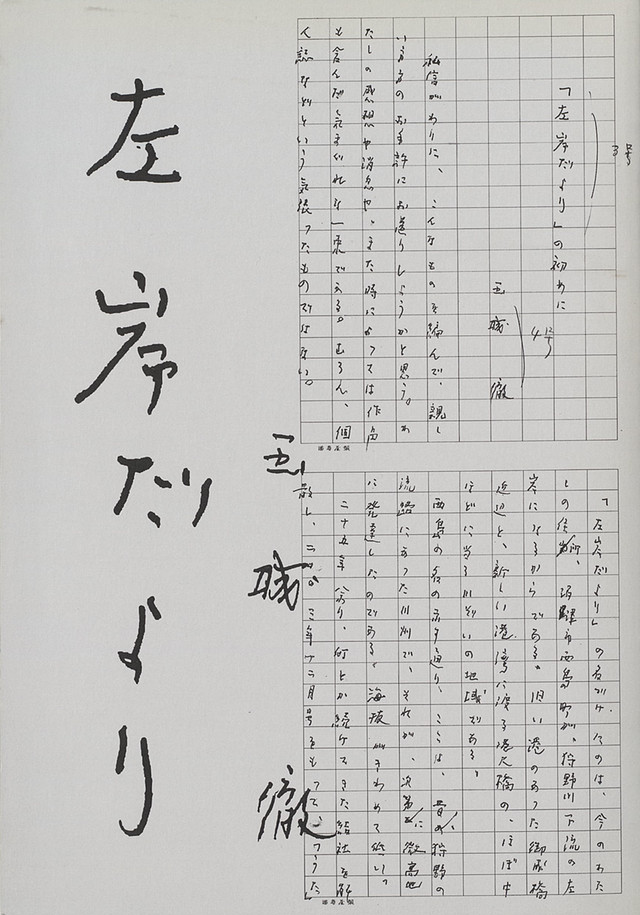 左岸だより
玉城 徹
3号
「左岸だより」の初めに
4号
玉城 徹
私信がわりに、こんなものを編んで、親し
いかたのお手許にお送りしようかと思う。わ
たしの感想や消息や、また時によっては作品
も含んだ気まぐれな一束である。むろん、個
人誌などという気張ったものではない。
「左岸だより」の名が付くのは、今のわた
しの住所、沼津市西島町が、狩野川下流の左
岸になるからである。旧い港のあった御成橋
近辺と、新しい港湾に渡る港大橋の、ほぼ中
ほどに当る川ぞいの地域である。
西島の名の示す通り、ここは、昔の狩野の
流路にあった川州で、それが、次第に微高地
に発達したのである。海抜がきわめて低い。
二十五年余り、何とか続けてきた結社を解
散し、二〇〇三年十二月号をもって、「うた」